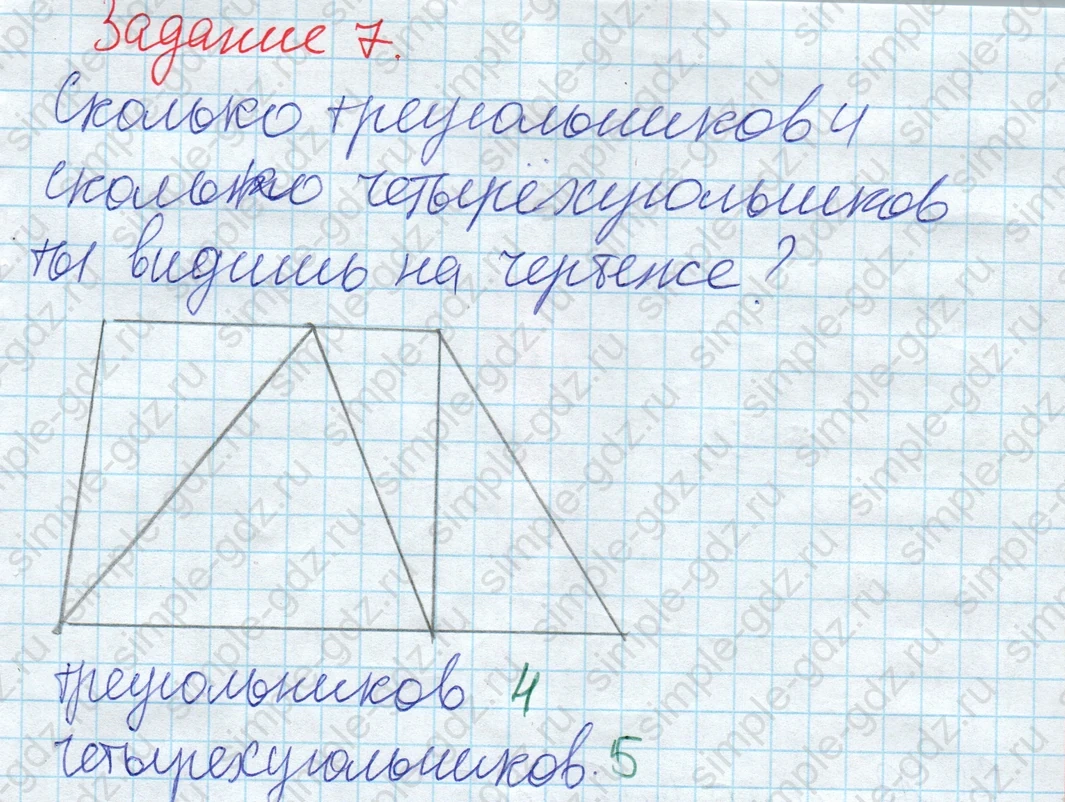 Задание 7.
Сколько треугольников и
сколько четырёхугольников
ты видишь на чертеже?
треугольников 4
четырехугольников. 5
simple-gdz.ru